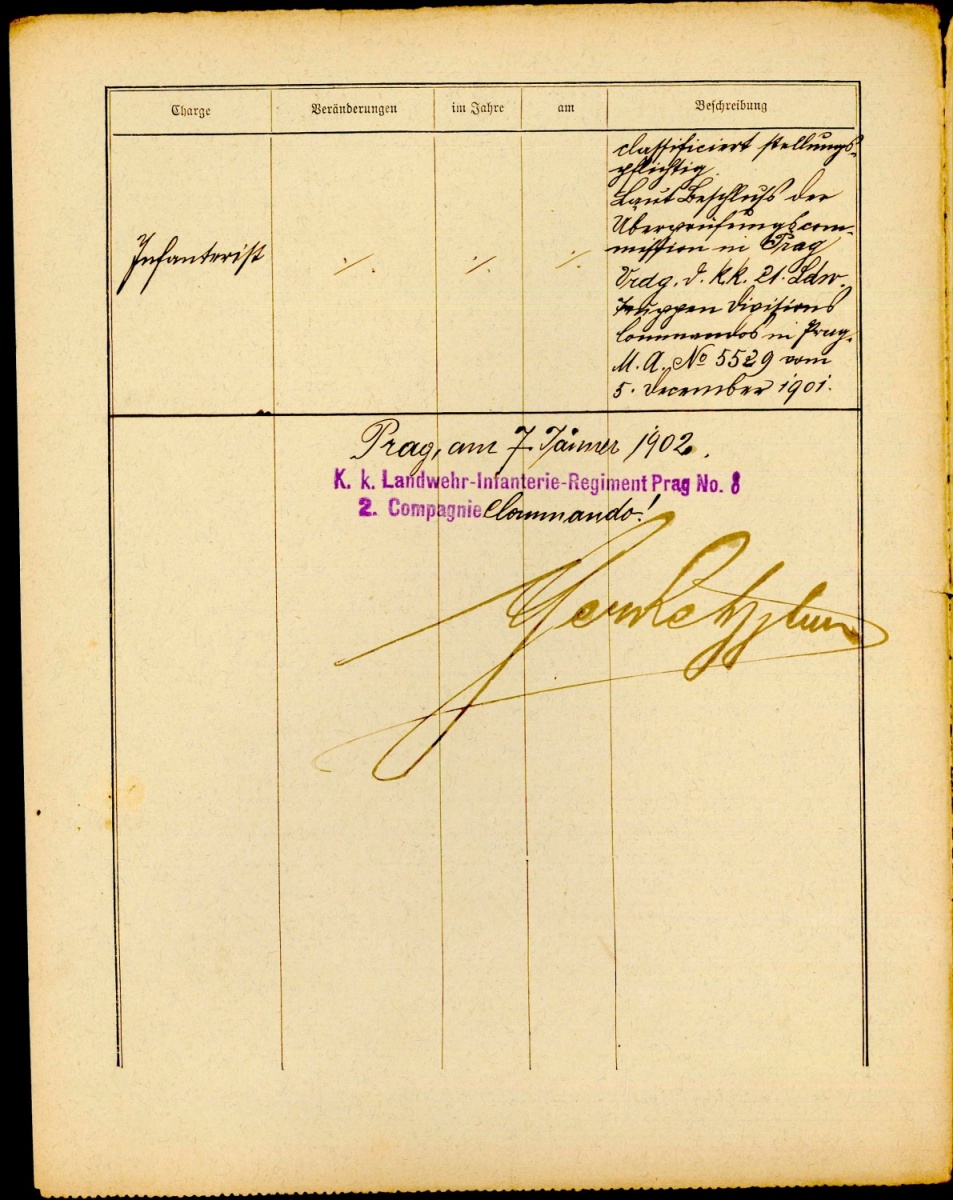 Charge Veränderungen im Jahre am Beschreibung
classificiert stellungs-
pflichtig.
Laut Beschluss der
Überprüfungscom-
mission in Prag
Infanterist ·/. ·/. ·/.
Vrdg. d. k.k. 21. Ldw.
Truppen Divisions
Commandos in Prag.
M. A. No 5529 vom
5. December 1901.
Prag, am 7. Jänner 1902.
K. k. Landwehr-Infanterie-Regiment Prag No. 8
2. Compagnie Commando!